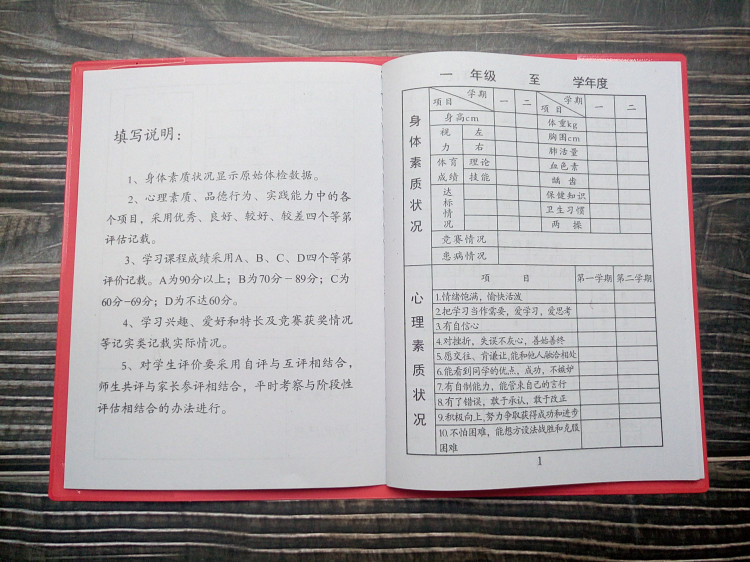 填写说明：
1、身体素质状况显示原始体检数据。
2、心理素质、品德行为、实践能力中的各
个项目，采用优秀、良好、较好、较差四个等第
评估记载。
3、学习课程成绩采用A、B、C、D四个等第
评价记载。A为90分以上；B为70分－89分；C为
60分-69分；D为不达60分。
4、学习兴趣、爱好和特长及竞赛获奖情况
等记实类记载实际情况。
5、对学生评价要采用自评与互评相结合，
师生共评与家长参评相结合，平时考察与阶段性
评估相结合的办法进行。
一 年级 至 学年度
身体素质状况
项目 学期 一 二 项目 学期 一 二
身高cm 体重kg
视力 左 胸围cm
右 肺活量
体育成绩 理论 血色素
技能 龋齿
达标情况 保健知识
卫生习惯
两操
竞赛情况
患病情况
心理素质状况
项目 第一学期 第二学期
1.情绪饱满，愉快活波
2.把学习当作需要，爱学习，爱思考
3.有自信心
4.对挫折，失误不灰心，善始善终
5.愿交往、肯谦让，能和他人融合相处
6.能看到同学的优点，成功，不嫉妒
7.有自制能力，能管束自己的言行
8.有了错误，敢于承认，敢于改正
9.积极向上，努力争取获得成功和进步
10.不怕困难，能想方设法战胜和克服
困难
1